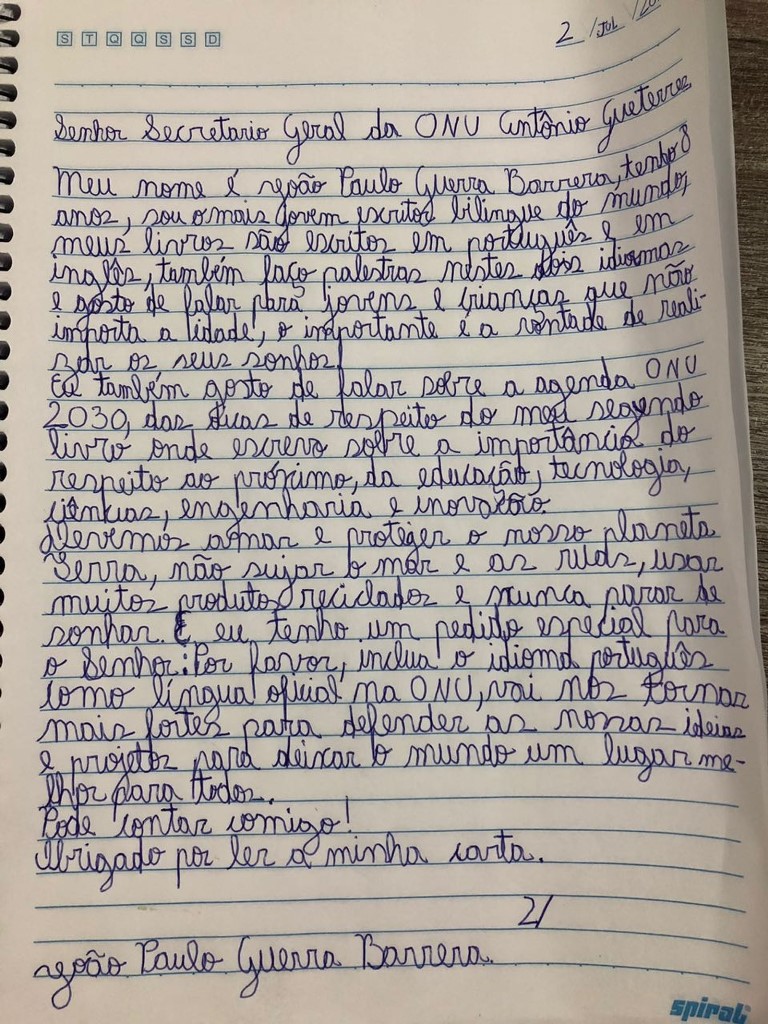 S T Q Q S S D
2 / JUL / 20
Senhor Secretario Geral da ONU Antônio Gueterres
Meu nome é João Paulo Guerra Barrera, tenho 8
anos, sou o mais jovem escritor bilíngue do mundo,
meus livros são escritos em português e em
inglês, também faço palestras nestes dois idiomas
e gosto de falar para jovens e crianças que não
importa a idade, o importante é a vontade de reali-
zar os seus sonhos!
Eu também gosto de falar sobre a agenda ONU
2030, das duas de respeito do meu segendo
livro onde escrevo sobre a importância do
respeito ao próximo, da educação, tecnologia,
ciências, engenharia e inovação.
Devemos amar e proteger o nosso planeta
Terra, não sujar o mar e as ruas, usar
muitos produtos reciclados e nunca parar de
sonhar. E eu tenho um pedido especial para
o Senhor: Por favor, inclua o idioma português
como língua oficial na ONU, vai nos tornar
mais fortes para defender as nossas ideias
e projetos para deixar o mundo um lugar me-
lhor para todos.
Pode contar comigo!
Obrigado por ler a minha carta.
João Paulo Guerra Barrera.
spiral